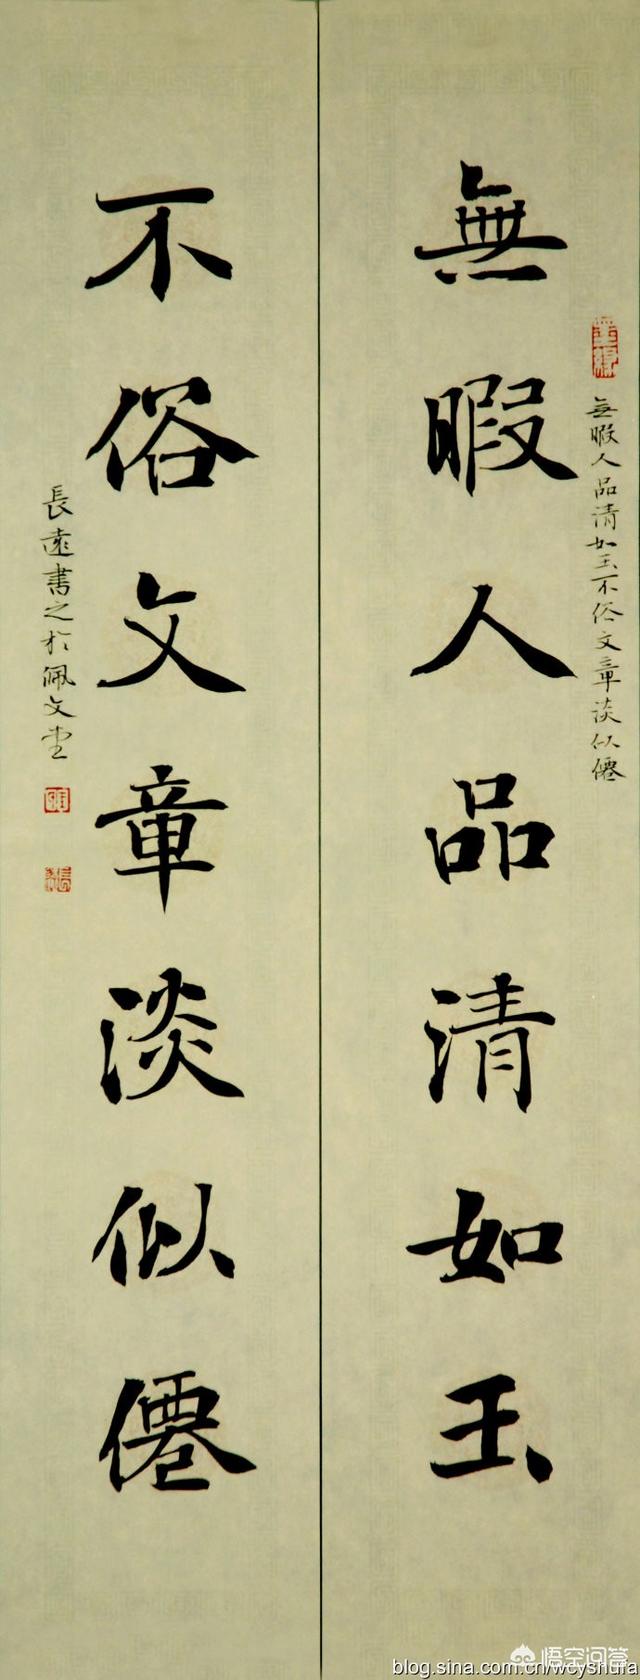 無暇人品清如玉不俗文章淡似僊
無暇人品清如玉
不俗文章淡似僊
長遠書之於佩文堂
blog.sina.com.cn/wcyshufa
悟空问答